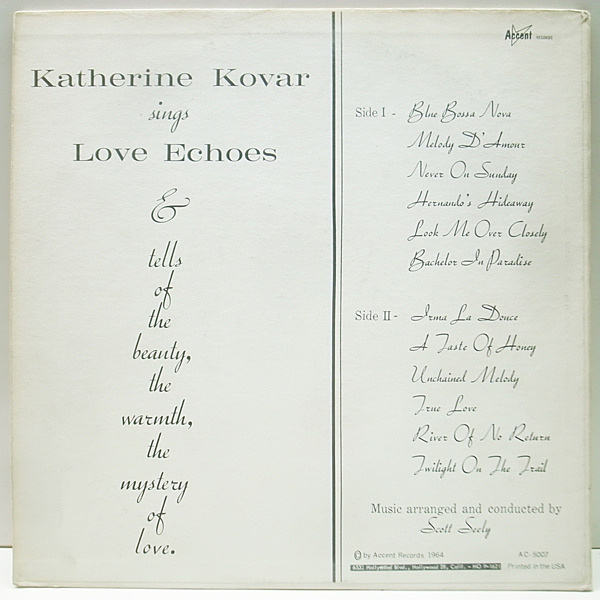 Accent RECORDS
Katherine Kovar
sings
Love Echoes
&
tells
of
the
beauty,
the
warmth,
the
mystery
of
love.
Side I - Blue Bossa Nova
Melody D'Amour
Never On Sunday
Hernando's Hideaway
Look Me Over Closely
Bachelor In Paradise
Side II - Irma La Douce
A Taste Of Honey
Unchained Melody
True Love
River Of No Return
Twilight On The Trail
Music arranged and conducted by
Scott Seely
© by Accent Records 1964 AC-5007
6533 Hollywood Blvd., Hollywood 28, Calif. - HO Printed in the USA